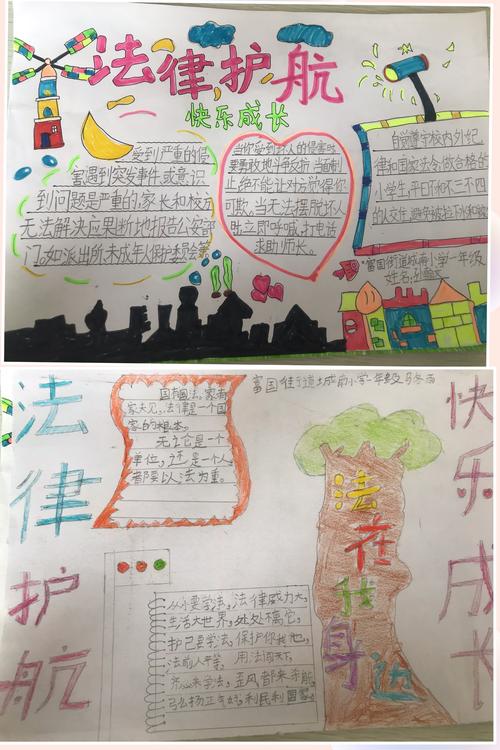 法律护航
快乐成长
受到严重的侵
害遇到突发事件或意识
到问题是严重的,家长和校方
无法解决应果断地报告公安部
门。如派出所,未成年人保护委员会等
当你受到坏人的侵害时
要勇敢地斗争反抗,当面制
止,绝不能让对方觉得你
可欺,当无法摆脱坏人
时,立即呼喊,打电话
求助师长。
自觉遵守校内外纪
律和国家法令,做合格的
小学生,平日不和不三不四
的人交往,避免被拉下水和
富国街道城南小学一年级
姓名:
富国街道城南小学一年级
法律护航
国有国法,家有
家夫见,法律是一个国
家的根本。
无论是一个
单位,还是一个人,
都要以法为重。
法在我身边
快乐成长
从小要学法,法律威力大,
生活大世界,处处离它,
护己要学法,保护你我他,
法前人平等,用法闯天下,
齐心来学法,歪风都来
弘扬正气好,利民利国家。